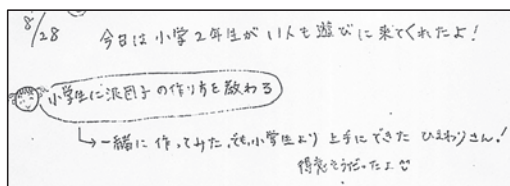 8/28 今日は小学2年生が11人も遊びに来てくれたよ!
小学生に泥団子の作り方を教わる
→一緒に作ってみた。でも小学生より上手にできたひまわりさん!
得意そうだったよ